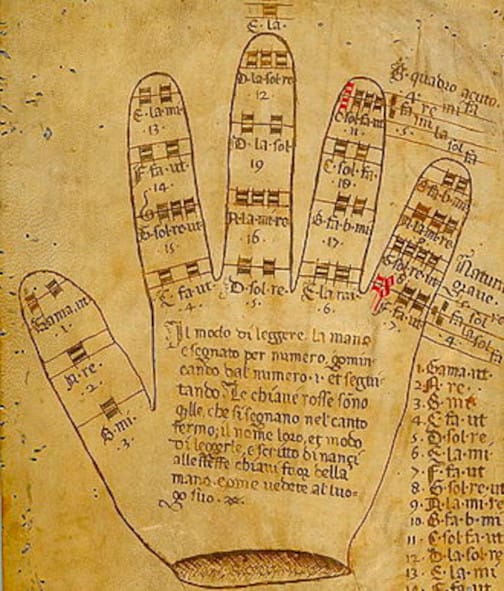 E · la ·
D · la · sol · re
12 ·
D · la · sol
19
A · la · mi · re
16 ·
D · sol · re
· 5 ·
E · la · mi
13 ·
F · fa · ut
· 14 ·
G · sol · re · ut
15 ·
C · fa · ut
· 4 ·
C sol · fa · ut
11 ·
C · sol · fa
18 ·
B · fa · b · mi
· 17 ·
E · la · mi
· 6 ·
B · quadro acuto
· 4 · re mi fa
fa mi la sol fa
· 5 ·
B · fa · b · mi
A · la · mi · re
G · sol · re · ut
8
F · fa · ut
· 7 ·
Natura
grave ·
fa sol la
la sol fa
· 4 ·
Gama · ut
· 1 ·
A · re ·
· 2 ·
B · mi ·
· 3 ·
Il modo di leggere la mano
e segnato per numero, comin
cando dal numero · 1 · et segui
tando. Le chiave rosse sono
qlle, che si segnano nel canto
fermo; il nome loro, et modo
di leggerle, e scritto dinanzi
alle stesse chiavi fuor della
mano, come vedete al luo
go suo ·
1 · Gama · ut
2 · A · re ·
3 · B · mi
4 · C · fa · ut
5 · D · sol · re
6 · E · la · mi
7 · F · fa · ut
8 · G · sol · re · ut
9 · A · la · mi · re
10 · B · fa · b · mi
11 · C · sol · fa · ut
12 · D · la · sol · re
13 · E · la · mi
14 · F · fa · ut